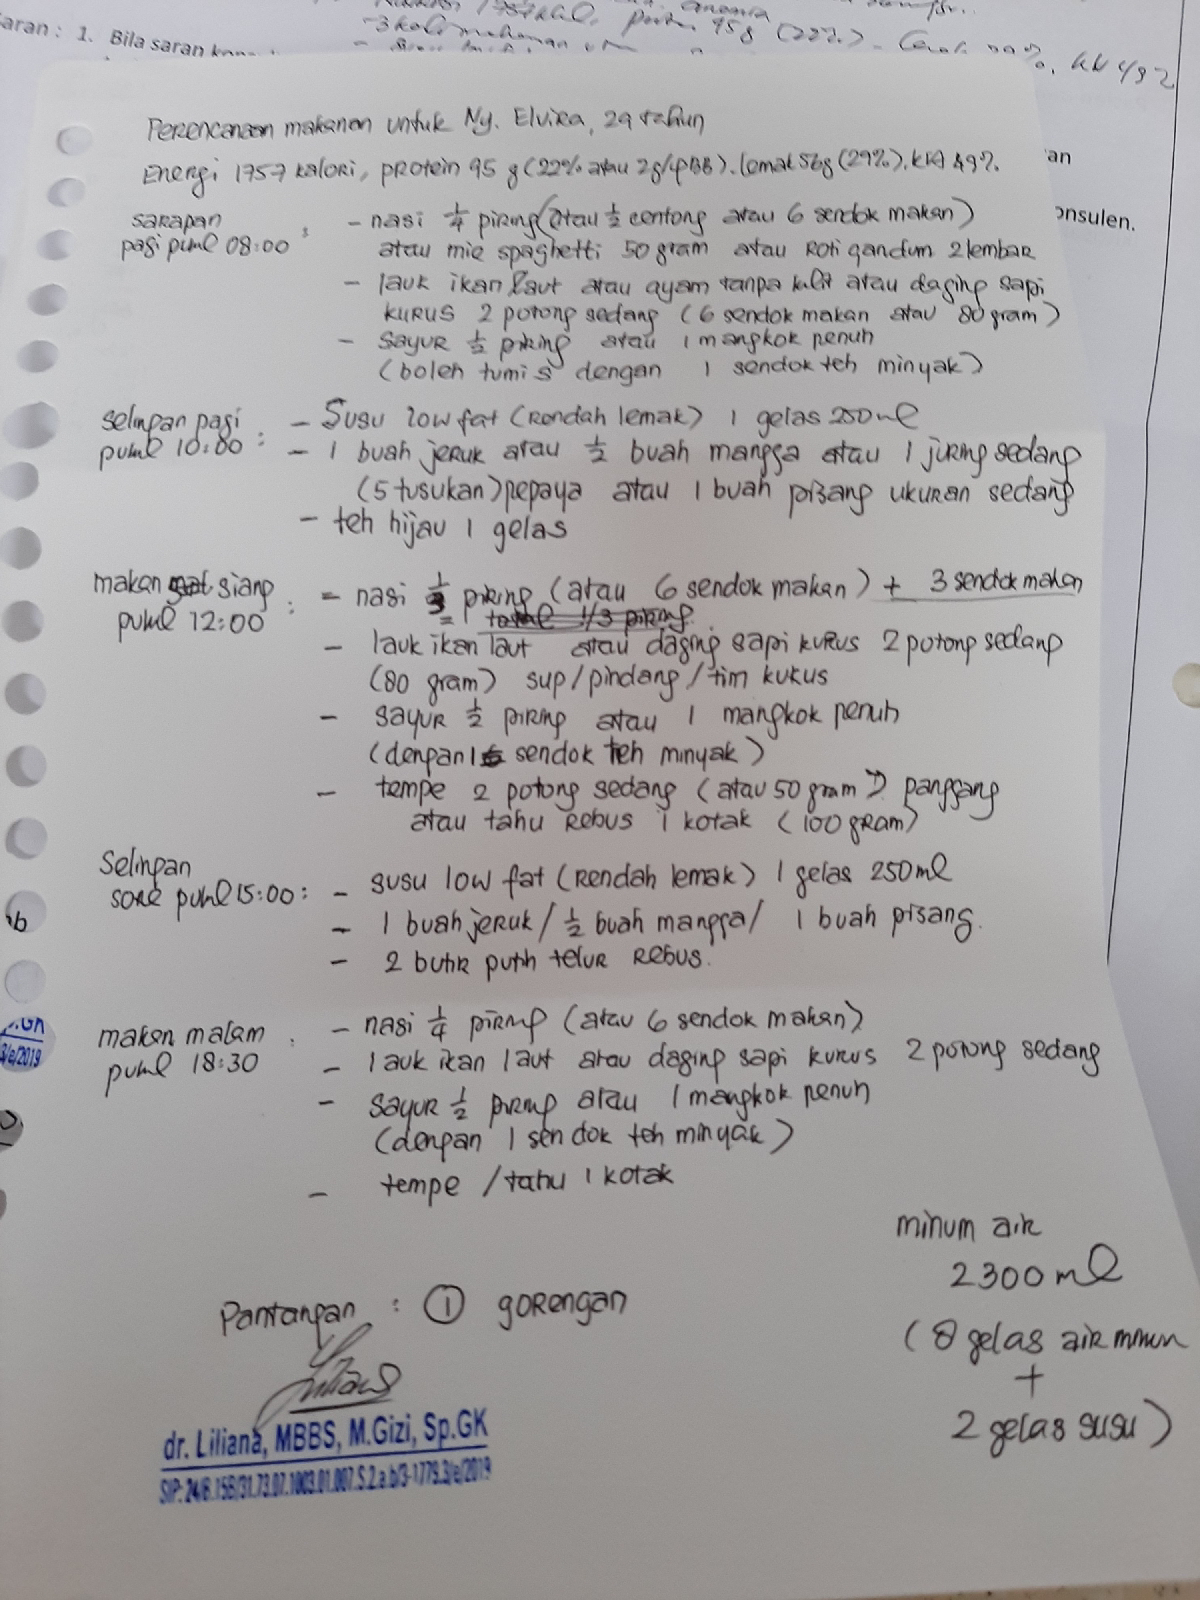 aran : 1. Bila saran
95 g (22%)
KH 492
an
onsulen.
Perencanaan makanan untuk Ny. Elvira, 29 tahun
Energi 1757 kalori, protein 95 g (22% atau 2g/kgBB). lemak 56g (29%). KH 49%.
sarapan
pagi pukul 08:00 :
- nasi 1/4 piring (atau 1/2 centong atau 6 sendok makan)
atau mie spaghetti 50 gram atau Roti gandum 2 lembar
- lauk ikan laut atau ayam tanpa kulit atau daging sapi
kurus 2 potong sedang (6 sendok makan atau 80 gram)
- sayur 1/2 piring atau 1 mangkok penuh
(boleh tumis dengan 1 sendok teh minyak)
selingan pagi
pukul 10:00 :
- Susu low fat (rendah lemak) 1 gelas 250 ml
- 1 buah jeruk atau 1/2 buah mangga atau 1 juring sedang
(5 tusukan) pepaya atau 1 buah pisang ukuran sedang
- teh hijau 1 gelas
makan siang
pukul 12:00 :
- nasi piring (atau 6 sendok makan) + 3 sendok makan
- lauk ikan laut atau daging sapi kurus 2 potong sedang
(80 gram) sup/pindang/tim kukus
- sayur 1/2 piring atau 1 mangkok penuh
(dengan 1 sendok teh minyak)
- tempe 2 potong sedang (atau 50 gram) panggang
atau tahu rebus 1 kotak (100 gram)
Selingan
sore pukul 15:00 :
- susu low fat (rendah lemak) 1 gelas 250 ml
- 1 buah jeruk / 1/2 buah mangga / 1 buah pisang.
- 2 butir putih telur rebus.
makan malam
pukul 18:30 :
- nasi 1/4 piring (atau 6 sendok makan)
- lauk ikan laut atau daging sapi kurus 2 potong sedang
- sayur 1/2 piring atau 1 mangkok penuh
(dengan 1 sendok teh minyak)
- tempe / tahu 1 kotak
minum air
2300 ml
(8 gelas air minum
+
2 gelas susu)
Pantangan : ① gorengan
dr. Liliana, MBBS, M.Gizi, Sp.GK
SIP: 24/B.15B/31.73.07.1003.01.007.S.2.a.b/3-1779.3/e/2019
.GK
3/e/2019